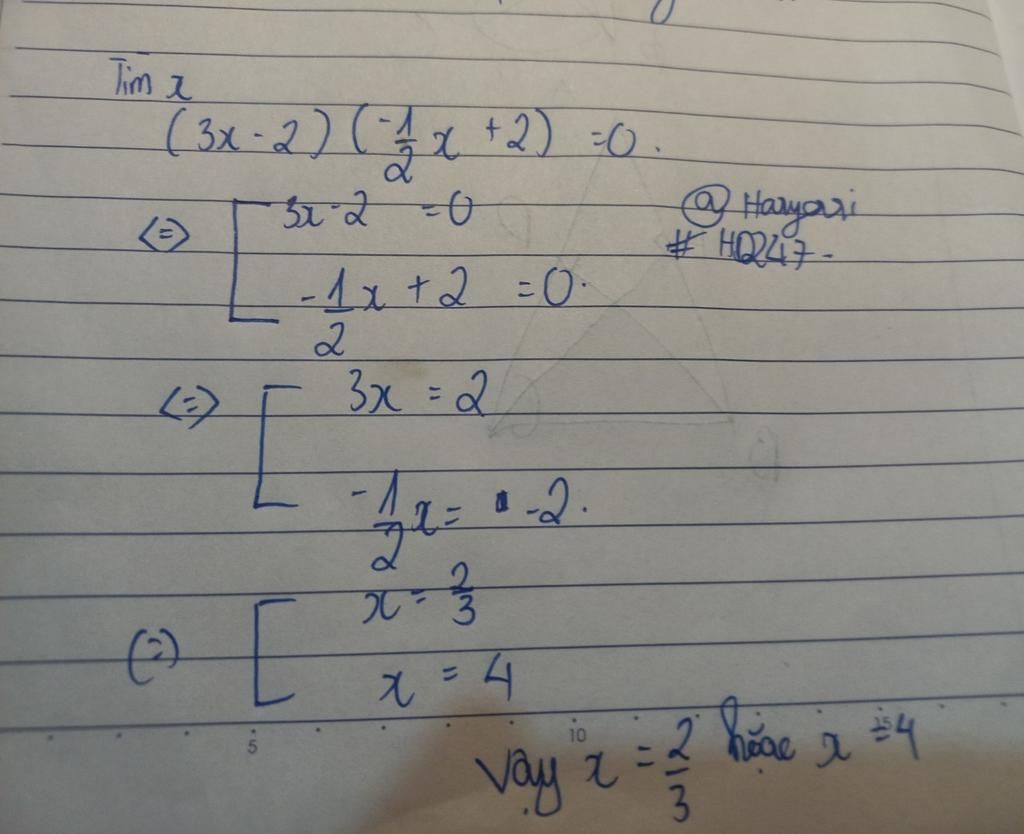 Tìm x
(3x - 2) (-1/2 x + 2) = 0.
<=> [ 3x - 2 = 0
-1/2 x + 2 = 0.
@ Haryari
# HQ247.
<=> [ 3x = 2
-1/2 x = -2.
(=) [ x = 2/3
x = 4
5 10 15
Vậy x = 2/3 hoặc x = 4